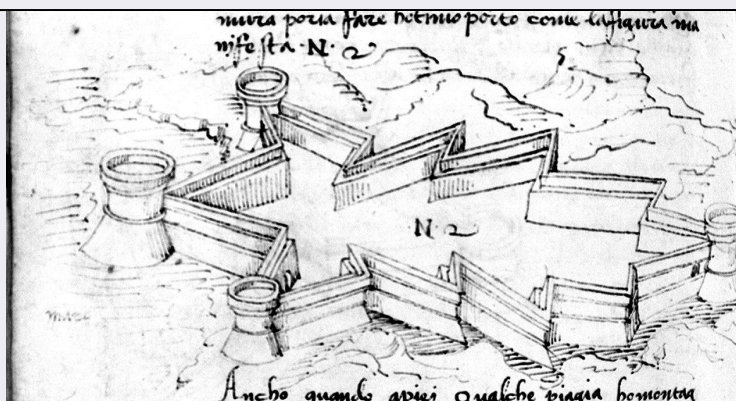 mura poria fare hotmio porto come lafigura ma
nifesta · N ·
N
Ancho quando apiei qualche piagia homontag